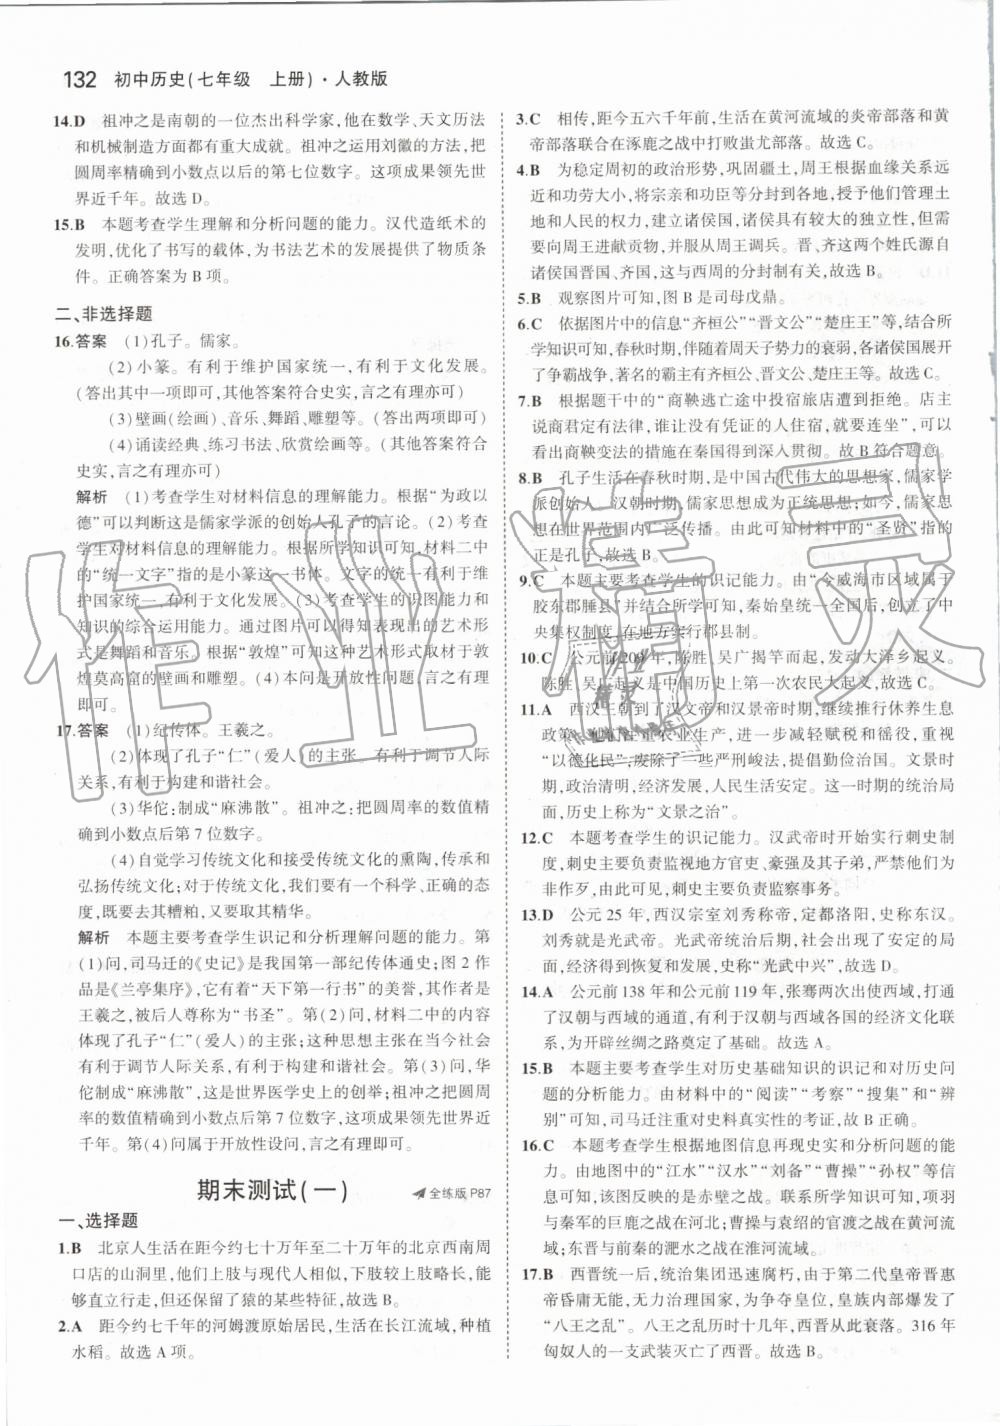 132 初中历史(七年级 上册)·人教版
14.D 祖冲之是南朝的一位杰出科学家,他在数学、天文历法
和机械制造方面都有重大成就。祖冲之运用刘徽的方法,把
圆周率精确到小数点以后的第七位数字。这项成果领先世
界近千年。故选D。
15.B 本题考查学生理解和分析问题的能力。汉代造纸术的
发明,优化了书写的载体,为书法艺术的发展提供了物质条
件。正确答案为B项。
二、非选择题
16.答案 (1)孔子。儒家。
(2)小篆。有利于维护国家统一,有利于文化发展。
(答出其中一项即可,其他答案符合史实,言之有理亦可)
(3)壁画(绘画)、音乐、舞蹈、雕塑等。(答出两项即可)
(4)诵读经典、练习书法、欣赏绘画等。(其他答案符合
史实,言之有理亦可)
解析 (1)考查学生对材料信息的理解能力。根据“为政以
德”可以判断这是儒家学派的创始人孔子的言论。(2)考查
学生对材料信息的理解能力。根据所学知识可知,材料二中
的“统一文字”指的是小篆这一书体。文字的统一有利于维
护国家统一,有利于文化发展。(3)考查学生的识图能力和
知识的综合运用能力。通过图片可以得知表现出的艺术形
式是舞蹈和音乐。根据“敦煌”可知这种艺术形式取材于敦
煌莫高窟的壁画和雕塑。(4)本问是开放性问题,言之有理
即可。
17.答案 (1)纪传体。王羲之。
(2)体现了孔子“仁”(爱人)的主张。有利于调节人际
关系,有利于构建和谐社会。
(3)华佗:制成“麻沸散”。祖冲之:把圆周率的数值精
确到小数点后第7位数字。
(4)自觉学习传统文化和接受传统文化的熏陶,传承和
弘扬传统文化;对于传统文化,我们要具有科学、正确的态
度,既要去其糟粕,又要取其精华。
解析 本题主要考查学生识记和分析理解问题的能力。第
(1)问,司马迁的《史记》是我国第一部纪传体通史;图2作
品是《兰亭集序》,它有着“天下第一行书”的美誉,其作者是
王羲之,被后人尊称为“书圣”。第(2)问,材料二中的内容
体现了孔子“仁”(爱人)的主张;这种主张在当今社会
有利于调节人际关系、有利于构建和谐社会。第(3)问,华
佗制成“麻沸散”,这是世界医学史上的创举;祖冲之把圆周
率的数值精确到小数点后第7位数字,这项成果领先世界近
千年。第(4)问属于开放性设问,言之有理即可。
期末测试(一) 全练版P87
一、选择题
1.B 北京人生活在距今约七十万年至二十万年的北京西南周
口店的山洞里,他们上肢与现代人相似,下肢较上肢略长,能
够直立行走,但还保留了猿的某些特征,故选B。
2.A 距今约七千年的河姆渡原始居民,生活在长江流域,种植
水稻。故选A项。
3.C 相传,距今五六千年前,生活在黄河流域的炎帝部落和黄
帝部落联合在涿鹿之战中打败蚩尤部落。故选C。
4.B 为稳定周初的政治形势,巩固疆土,周王根据血缘关系远
近和功劳大小,将宗亲和功臣等分封到各地,授予他们管理土
地和人民的权力,建立诸侯国,诸侯具有较大的独立性,但同时
要向周王进献贡物,并服从周王调兵。晋、齐这两个姓氏源自
诸侯国晋国、齐国,这与西周的分封制有关,故选B。
5.B 观察图片可知,图B是司母戊鼎。
6.C 依据图片中的信息“齐桓公”“晋文公”“楚庄王”等,结合所
学知识可知,春秋时期,伴随着周天子势力的衰弱,各诸侯国展开
了争霸战争,著名的霸主有齐桓公、晋文公、楚庄王等。故选C。
7.B 根据题干中的“商鞅逃亡途中投宿旅店遭到拒绝。店主
说商君定有法律,谁让没有凭证的人住宿,就要连坐”,可以看
出商鞅变法的措施在秦国得到了深入贯彻。故B符合题意。
8.B 孔子生活在春秋时期,是中国古代伟大的思想家,儒家学
派创始人。汉朝时期,儒家思想成为正统思想;如今,儒家思
想在世界范围内广泛传播。由此可知材料中的“圣贤”指的
正是孔子,故选B。
9.C 本题主要考查学生的识记能力。由“今威海市区域属于
胶东郡腄县”并结合所学可知,秦始皇统一全国后,创立了中
央集权制度,在地方实行郡县制。
10.C 公元前209年,陈胜、吴广揭竿而起,发动大泽乡起义。
陈胜、吴广起义是中国历史上第一次农民大起义,故选C。
11.A 西汉王朝到了汉文帝和汉景帝时期,继续推行休养生息
政策。他们注重农业生产,进一步减轻赋税和徭役,重视
“以德化民”,废除了一些严刑峻法,提倡勤俭治国。文景时
期,政治清明,经济发展,人民生活安定。这一时期的统治局
面,历史上称为“文景之治”。
12.C 本题考查学生的识记能力。汉武帝时开始实行刺史制
度,刺史主要负责监视地方官吏、豪强及其子弟,严禁他们为
非作歹,由此可见,刺史主要负责监察事务。
13.D 公元25年,西汉宗室刘秀称帝,定都洛阳,史称东汉。
刘秀就是光武帝。光武帝统治后期,社会出现了安定的局
面,经济得到恢复和发展,史称“光武中兴”,故选D。
14.A 公元前138年和公元前119年,张骞两次出使西域,打通
了汉朝与西域的通道,有利于汉朝与西域各国的经济文化联
系,为开辟丝绸之路奠定了基础。故选A。
15.B 本题主要考查学生对历史基础知识的识记和对历史问
题的分析能力。由材料中的“阅读”“考察”“搜集”和“辨
别”可知,司马迁注重对史料真实性的考证,故B正确。
16.C 本题考查学生根据地图信息再现史实和分析问题的能
力。由地图中的“江水”“汉水”“刘备”“曹操”“孙权”等信
息可知,该图反映的是赤壁之战。联系所学知识可知,项羽
与秦军的巨鹿之战在河北;曹操与袁绍的官渡之战在黄河流
域;东晋与前秦的淝水之战在淮河流域。
17.B 西晋统一后,统治集团迅速腐朽,由于第二代皇帝晋惠
帝昏庸无能,为争夺皇位,皇族形成割据势力,爆发了
“八王之乱”。八王之乱历时十几年,西晋从此衰落。316年
匈奴人的一支武装灭亡了西晋。故选B。
作业精灵